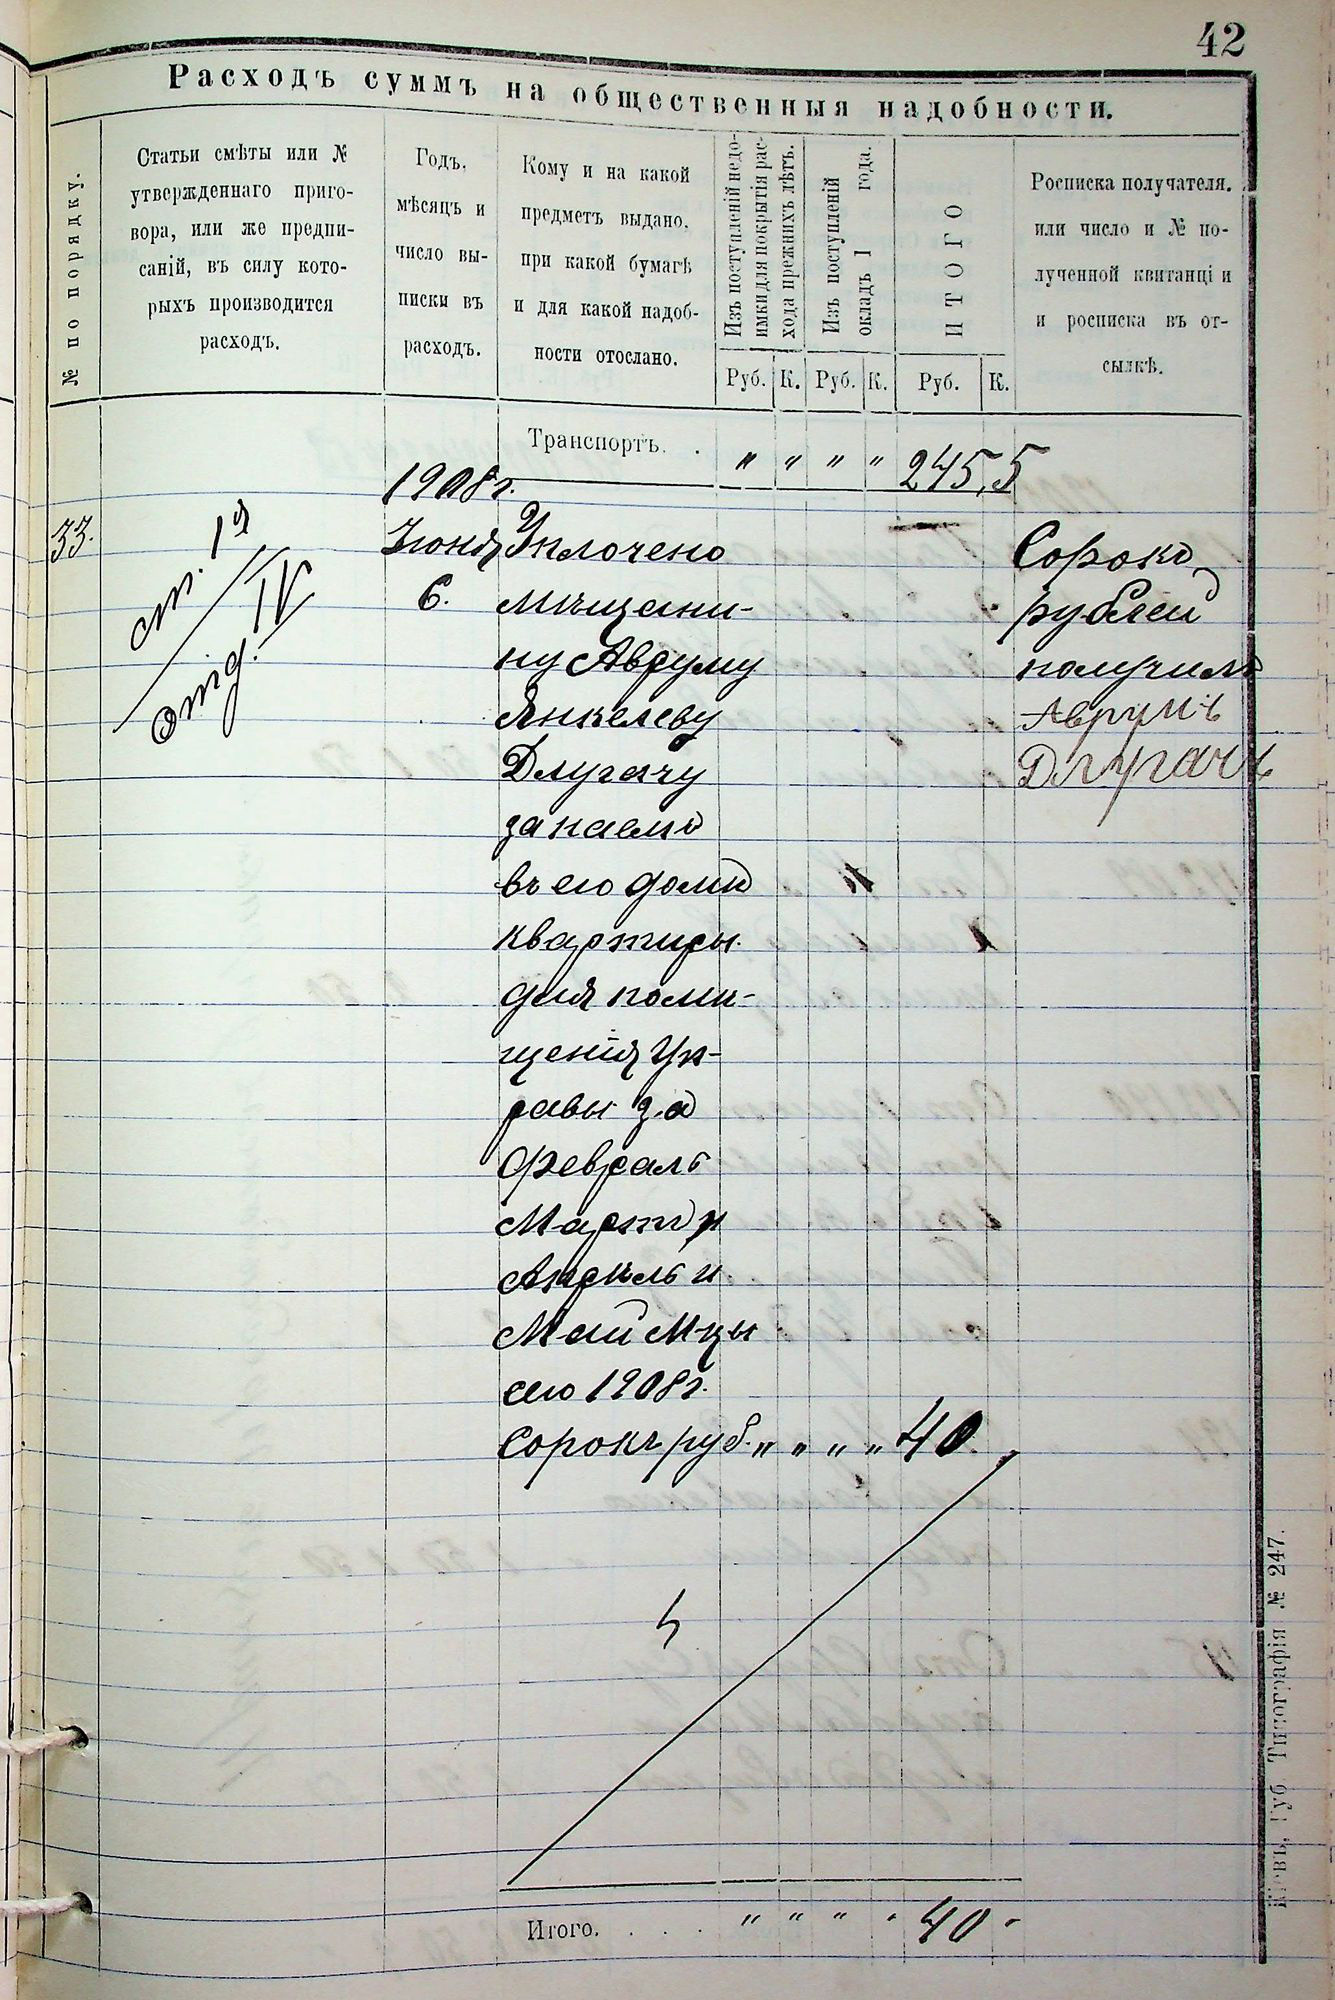 42
Расходъ суммъ на общественныя надобности.
№ по порядку.
Статьи смѣты или №
утвержденнаго приго-
вора, или же предпи-
саній, въ силу кото-
рыхъ производится
расходъ.
Годъ,
мѣсяцъ и
число вы-
писки въ
расходъ.
Кому и на какой
предметъ выдано,
при какой бумагѣ
и для какой надоб-
ности отослано.
Изъ поступленій недо-
имки для покрытія рас-
хода прежнихъ лѣтъ.
Изъ поступленій
окладъ 1 года.
ИТОГО
Росписка получателя.
или число и № по-
лученной квитанціи
и росписка въ от-
сылкѣ.
Руб. К. Руб. К. Руб. К.
Транспортъ. . „ „ „ „ 245,5
1908 г.
33.
ст. 1я
отд. IV
Іюня
6.
Уплочено
мѣщани-
ну Авруму
Янкелеву
Длугачу
за наемъ
въ его домѣ
квартиры
для помѣ-
щенія Уп-
равы за
Февраль
Мартъ и
Апрѣль и
Май М-цы
сего 1908 г.
Сорокъ руб. „ „ „ „ 40.
Сорокъ
рублей
получилъ
Аврумъ
Длугачъ
Итого. . . . . „ „ „ „ 40 -
Кіевъ, Губ. Типографія № 247.